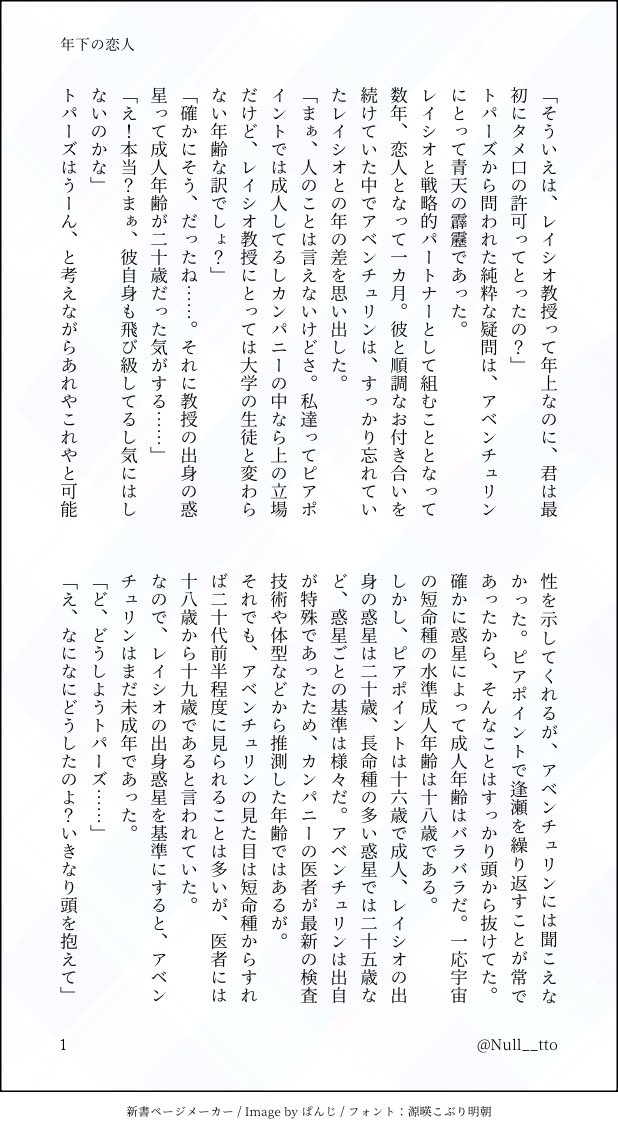 年下の恋人
「そういえは、レイシオ教授って年上なのに、君は最
初にタメ口の許可ってとったの？」
トパーズから問われた純粋な疑問は、アベンチュリン
にとって青天の霹靂であった。
レイシオと戦略的パートナーとして組むこととなって
数年、恋人となって一カ月。彼と順調なお付き合いを
続けていた中でアベンチュリンは、すっかり忘れてい
たレイシオとの年の差を思い出した。
「まぁ、人のことは言えないけどさ。私達ってピアポ
イントでは成人してるしカンパニーの中なら上の立場
だけど、レイシオ教授にとっては大学の生徒と変わら
ない年齢な訳でしょ？」
「確かにそう、だったね……。それに教授の出身の惑
星って成人年齢が二十歳だった気がする……」
「え！本当？まぁ、彼自身も飛び級してるし気にはし
ないのかな」
トパーズはうーん、と考えながらあれやこれやと可能
性を示してくれるが、アベンチュリンには聞こえな
かった。ピアポイントで逢瀬を繰り返すことが常で
あったから、そんなことはすっかり頭から抜けてた。
確かに惑星によって成人年齢はバラバラだ。一応宇宙
の短命種の水準成人年齢は十八歳である。
しかし、ピアポイントは十六歳で成人、レイシオの出
身の惑星は二十歳、長命種の多い惑星では二十五歳な
ど、惑星ごとの基準は様々だ。アベンチュリンは出自
が特殊であったため、カンパニーの医者が最新の検査
技術や体型などから推測した年齢ではあるが。
それでも、アベンチュリンの見た目は短命種からすれ
ば二十代前半程度に見られることは多いが、医者には
十八歳から十九歳であると言われていた。
なので、レイシオの出身惑星を基準にすると、アベン
チュリンはまだ未成年であった。
「ど、どうしようトパーズ……」
「え、なになにどうしたのよ？いきなり頭を抱えて」
1
@Null__tto
新書ページメーカー / Image by ぱんじ / フォント：源暎こぶり明朝